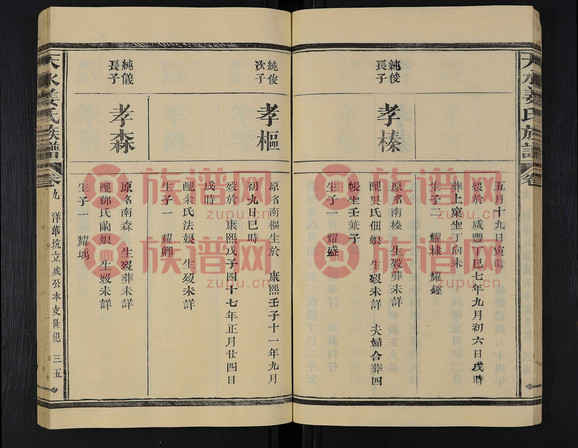 天水姜氏族譜
卷
五月十九日寅時
歿於 咸豐丁巳七年九月初六日戌時
葬上窠坐丁向未
生子二 耀棣 耀
純俊
長子
孝榛
原名南榛 生歿葬未詳
配吳氏佃娘 生歿未詳 夫婦合葬四
帳坐壬兼子
生子一 耀盛
純俊
次子
孝樞
原名南樞生於 康熙壬子十一年九月
初九日巳時
歿於 康熙戊子四十七年正月廿四日
戌時
配余氏法娘 生歿未詳
生子一 耀
純儀
長子
孝森
原名南森 生歿葬未詳
配鄧氏 娘 生歿未詳
生子一 耀瑀
天水姜氏族譜
卷九 洋華抗立成公本支世紀 三五
族谱网
zupu.cn
族谱网
zupu.cn
族谱网
zupu.cn
族谱网
zupu.cn